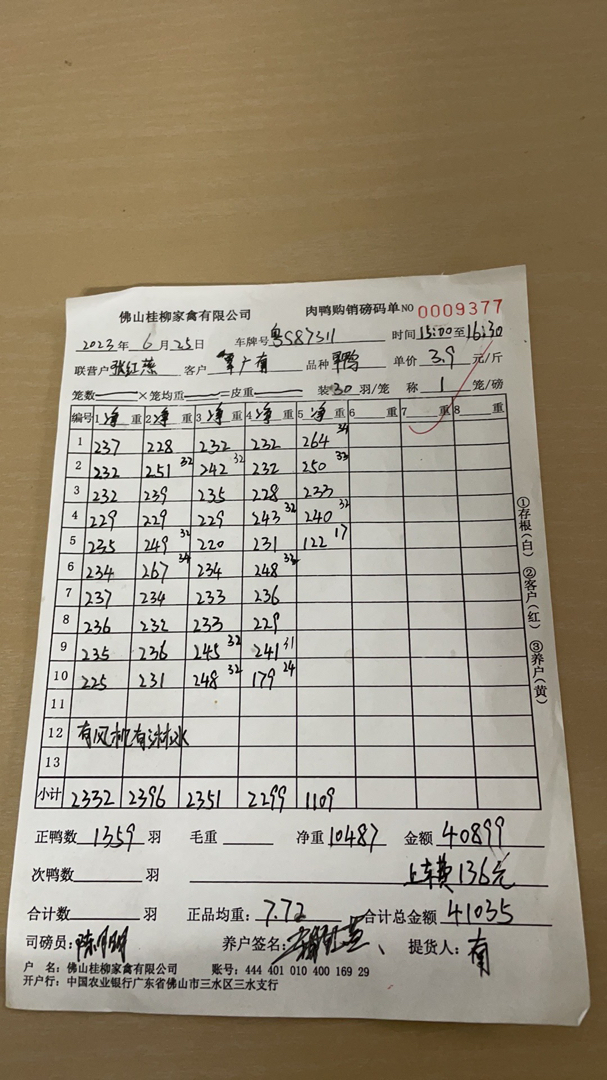 佛山桂柳家禽有限公司 肉鸭购销磅码单 NO 0009377
2023年 6月 25日 车牌号 粤S87311 时间 15:00至16:30
联营户 张红燕 客户 覃广有 品种 单价 3.9 元/斤
笼数 ×笼均重 =皮重 装 30 羽/笼 称 1 笼/磅
编号 1 净 重 2 净 重 3 净 重 4 净 重 5 净 重 6 重 7 重 8 重
1 237 228 232 232 264 34
2 232 251 32 242 32 232 250 33
3 232 239 235 228 233
4 229 229 229 243 32 240 32
5 235 249 32 220 231 122 17
6 234 267 34 234 248
7 237 234 233 236
8 236 232 233 229
9 235 236 245 32 241 31
10 225 231 248 32 179 24
11
12 有风机有淋水
13
小计 2332 2396 2351 2299 1109
①存根(白) ②客户(红) ③养户(黄)
正鸭数 1359 羽 毛重 净重 10487 金额 40899
次鸭数 羽 上车费136元
合计数 羽 正品均重: 7.72 合计总金额 41035
司磅员: 养户签名: 提货人: 有
户 名: 佛山桂柳家禽有限公司 账号: 444 401 010 400 169 29
开户行: 中国农业银行广东省佛山市三水区三水支行